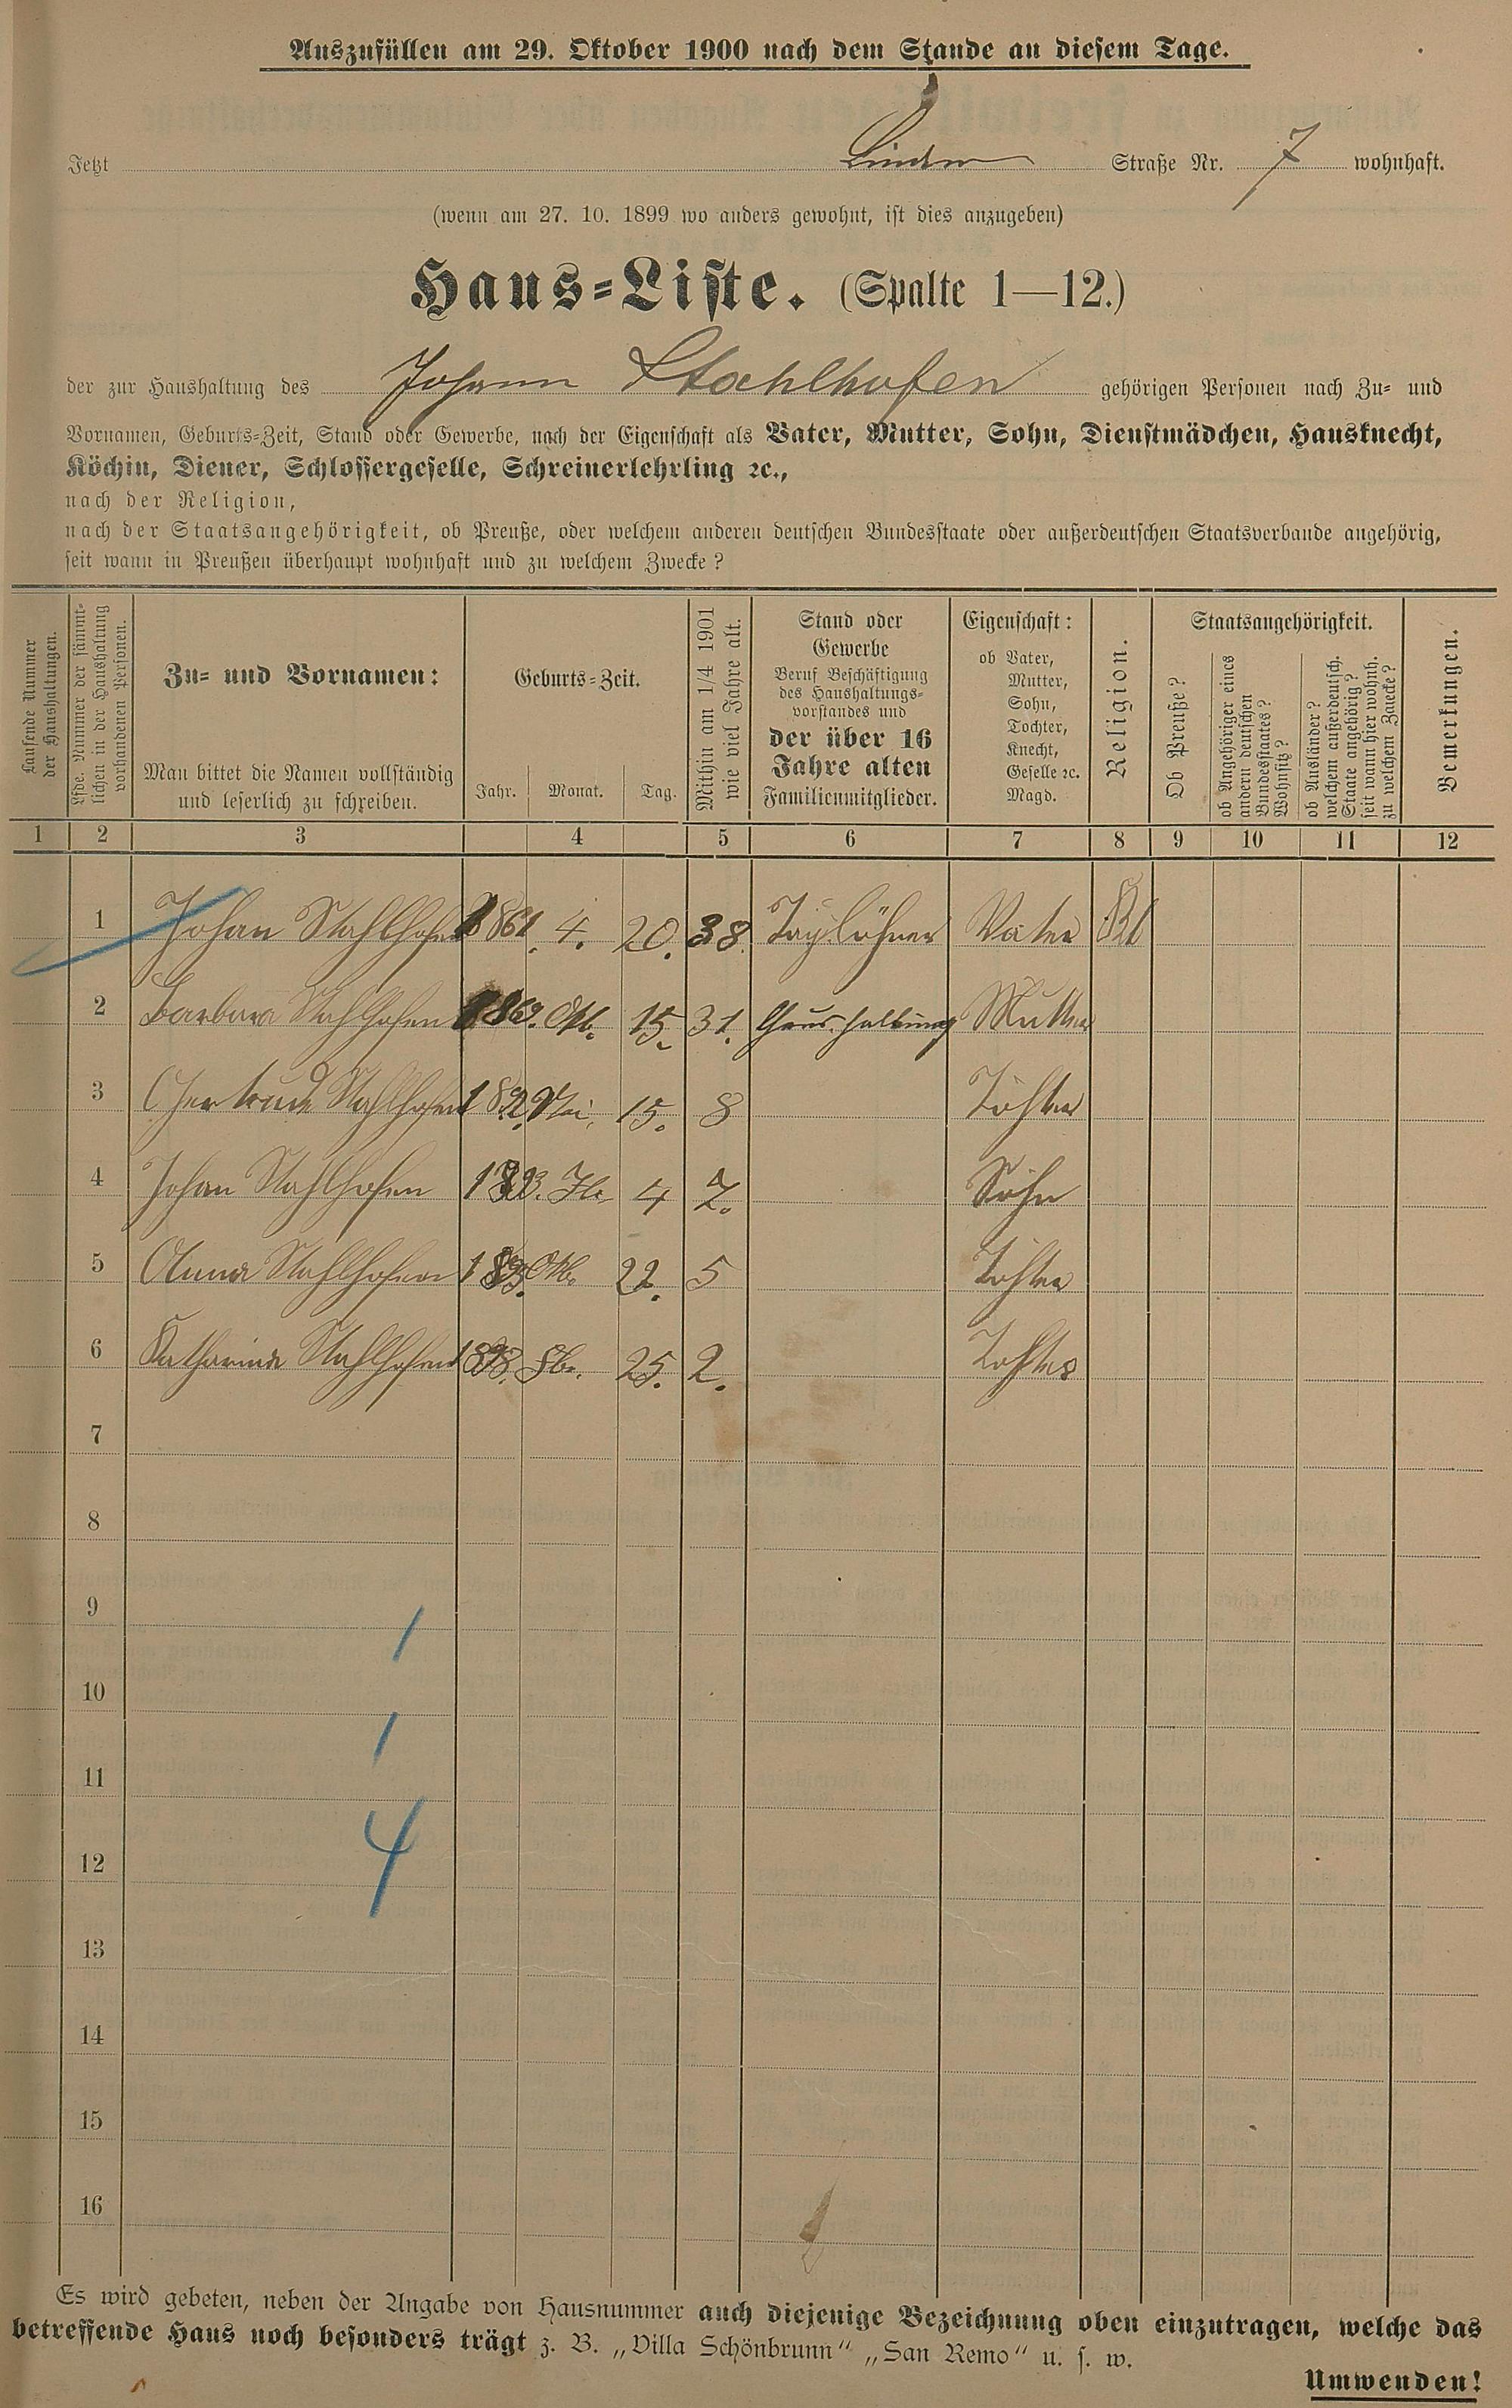 Auszufüllen am 29. Oktober 1900 nach dem Stande an diesem Tage.
Jetzt Linden Straße Nr. 7 wohnhaft.
(wenn am 27. 10. 1899 wo anders gewohnt, ist dies anzugeben)
Haus-Liste. (Spalte 1—12.)
der zur Haushaltung des Johann Stahlhofen gehörigen Personen nach Zu- und
Vornamen, Geburts-Zeit, Stand oder Gewerbe, nach der Eigenschaft als Vater, Mutter, Sohn, Dienstmädchen, Hausknecht,
Köchin, Diener, Schlossergeselle, Schreinerlehrling ꝛc.,
nach der Religion,
nach der Staatsangehörigkeit, ob Preuße, oder welchem anderen deutschen Bundesstaate oder außerdeutschen Staatsverbande angehörig,
seit wann in Preußen überhaupt wohnhaft und zu welchem Zwecke?
Laufende Nummer
der Haushaltungen.
Lfde. Nummer der sämmt-
lichen in der Haushaltung
vorhandenen Personen.
Zu- und Vornamen:
Man bittet die Namen vollständig
und leserlich zu schreiben.
Geburts-Zeit.
Jahr. Monat. Tag.
Mithin am 1/4 1901
wie viel Jahre alt.
Stand oder
Gewerbe
Beruf Beschäftigung
des Haushaltungs-
vorstandes und
der über 16
Jahre alten
Familienmitglieder.
Eigenschaft:
ob Vater,
Mutter,
Sohn,
Tochter,
Knecht,
Geselle ꝛc.
Magd.
Religion.
Staatsangehörigkeit.
Ob Preuße?
ob Angehöriger eines
andern deutschen
Bundesstaates?
Wohnsitz?
ob Ausländer?
welchem außerdeutsch.
Staate angehörig?
seit wann hier wohnh.
zu welchem Zwecke?
Bemerkungen.
1 2 3 4 5 6 7 8 9 10 11 12
1 Johan Stahlhofen 1861. 4. 20. 38. Taglöhner Vater
2 Barbara Stahlhofen Okt. 15. 31. Haushaltung Mutter
3 Gertrude Stahlhofen 1892. Mai. 15. 8 Tohter
4 Johan Stahlhofen 1893. 4 7. Sohn
5 Anna Stahlhofen 1895. Okt. 22. 5 Tohter
6 Katharina Stahlhofen 1898. Fbr. 25. 2. Tohter
7
8
9
1
10
1
11
4
12
13
14
15
16
Es wird gebeten, neben der Angabe von Hausnummer auch diejenige Bezeichnung oben einzutragen, welche das
betreffende Haus noch besonders trägt z. B. „Villa Schönbrunn“ „San Remo“ u. s. w.
Umwenden!